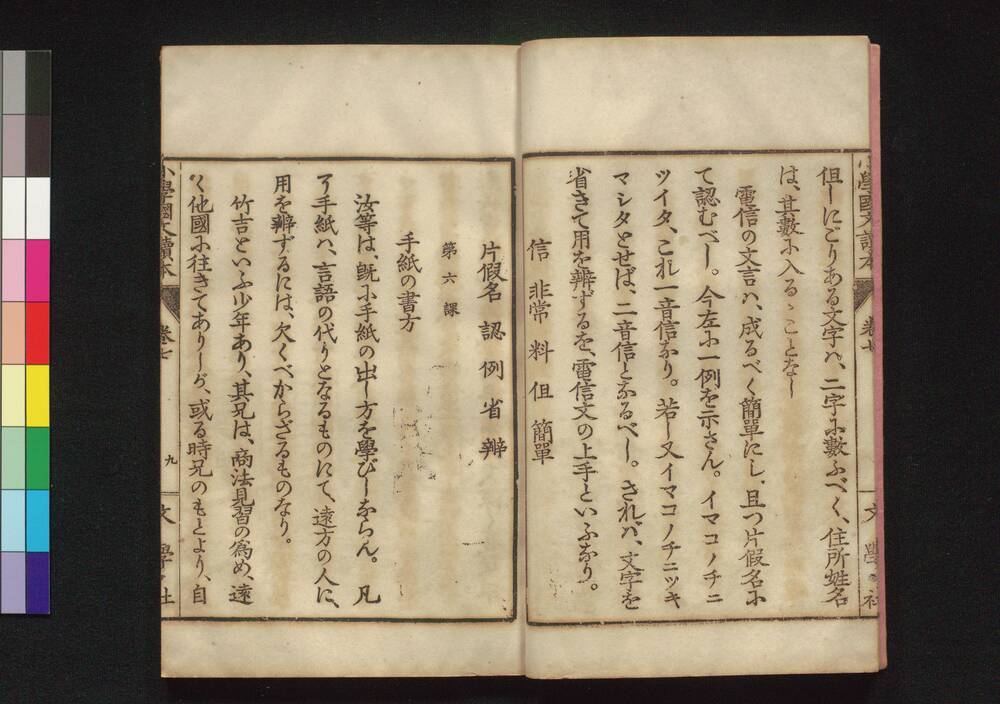 小學國文讀本
卷七
文學社
但しにごりある文字ハ、二字に數ふべく、住所姓名
は、其數に入るゝことなし
電信の文言ハ、成るべく簡單にし、且つ片假名に
て認むべし。今左に一例を示さん。イマコノチニ
ツイタ、これ一音信なり。若し又イマコノチニツキ
マシタとせば、二音信となるべし。されバ、文字を
省きて用を辨ずるを、電信文の上手といふなり。
信 非常 料 但 簡單
片假名 認 例 省 辨
第六課
手紙の書方
汝等は、既に手紙の出し方を學びしならん。凡
そ手紙ハ、言語の代りとなるものにて、遠方の人に、
用を辨ずるには、欠くべからざるものなり。
竹吉といふ少年あり、其兄は、商法見習の爲め、遠
く他國に往きてありしが、或る時兄のもとより、自
小學國文讀本
卷七
九
文學社